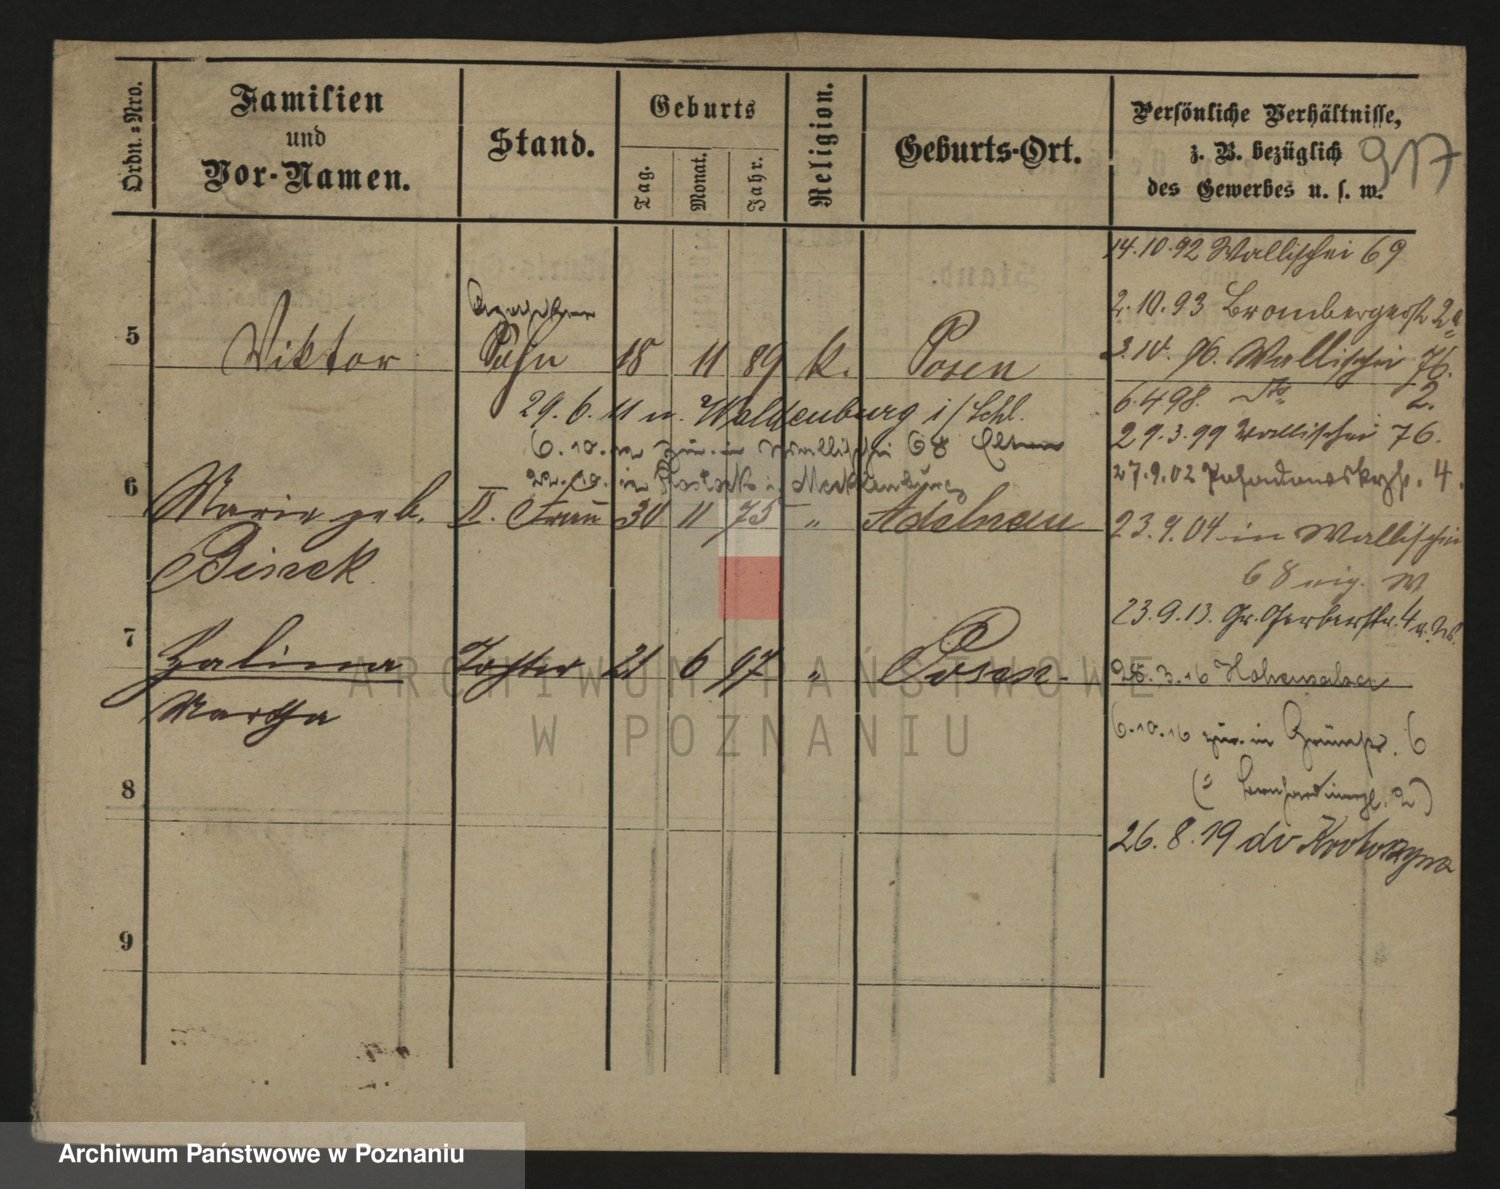 Ordn.=Nro.
Familien
und
Vor-Namen.
Stand.
Geburts
Tag.
Monat.
Jahr.
Religion.
Geburts-Ort.
Persönliche Verhältnisse,
z. B. bezüglich
des Gewerbes u. s. w.
917
14.10.92 Wallischei 69
2.10.93 Brombergerstr 2a
5 Viktor Sohn 18 11 89 k. Posen
96. Wallischei 76.
6.4 98. 2.
29.6.11 n. Waldenburg i/Schl.
29.3.99 Wallischei 76.
6.10. zur. in Wallischei 68 Eltern
27.9.02 4.
in Rostock i. Mecklenburg
6 Marie geb. II. Frau 30 11 75 " Adelnau
Binek
23.9.04 in Wallischei
68 eig. W
23.9.13. Gr. Gerberstr. 4
7 Halina Tochter 21 6 97 " Posen
Martha
3.16 Hohensalza
6.10.16 zur. in Grünstr. 6
(= Bernhardinerpl. 2)
8
26.8.19 do Krotoszyna
9
ARCHIWUM PAŃSTWOWE
W POZNANIU
Archiwum Państwowe w Poznaniu